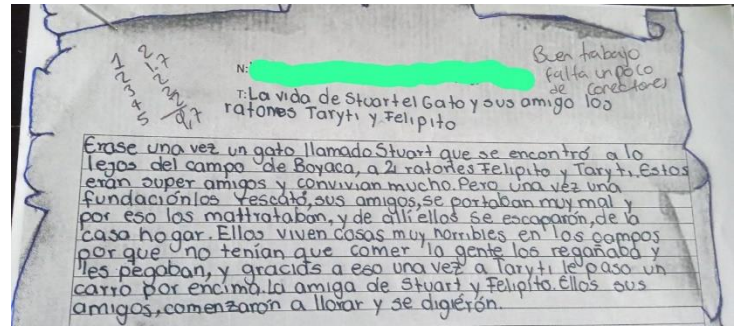 1 2
2 1,7
3 2
4 32
5 9,7
Buen trabajo
falta un poco
de conectores
N:
T: La vida de Stuart el Gato y sus amigo los
ratones Taryti y Felipito
Erase una vez un gato llamado Stuart que se encontró a lo
lejos del campo de Boyaca, a 2 ratones Felipito y Taryti. Estos
eran super amigos y convivian mucho. Pero una vez una
fundación los rescató, sus amigos, se portaban muy mal y
por eso los maltrataban, y de allí ellos se escaparón, de la
casa hogar. Ellos viven cosas muy horribles en los campos
por que no tenían que comer la gente los regañaba y
les pegaban, y gracias a eso una vez a Taryti le paso un
carro por encima. la amiga de Stuart y Felipito. Ellos sus
amigos, comenzarón a llorar y se digierón.